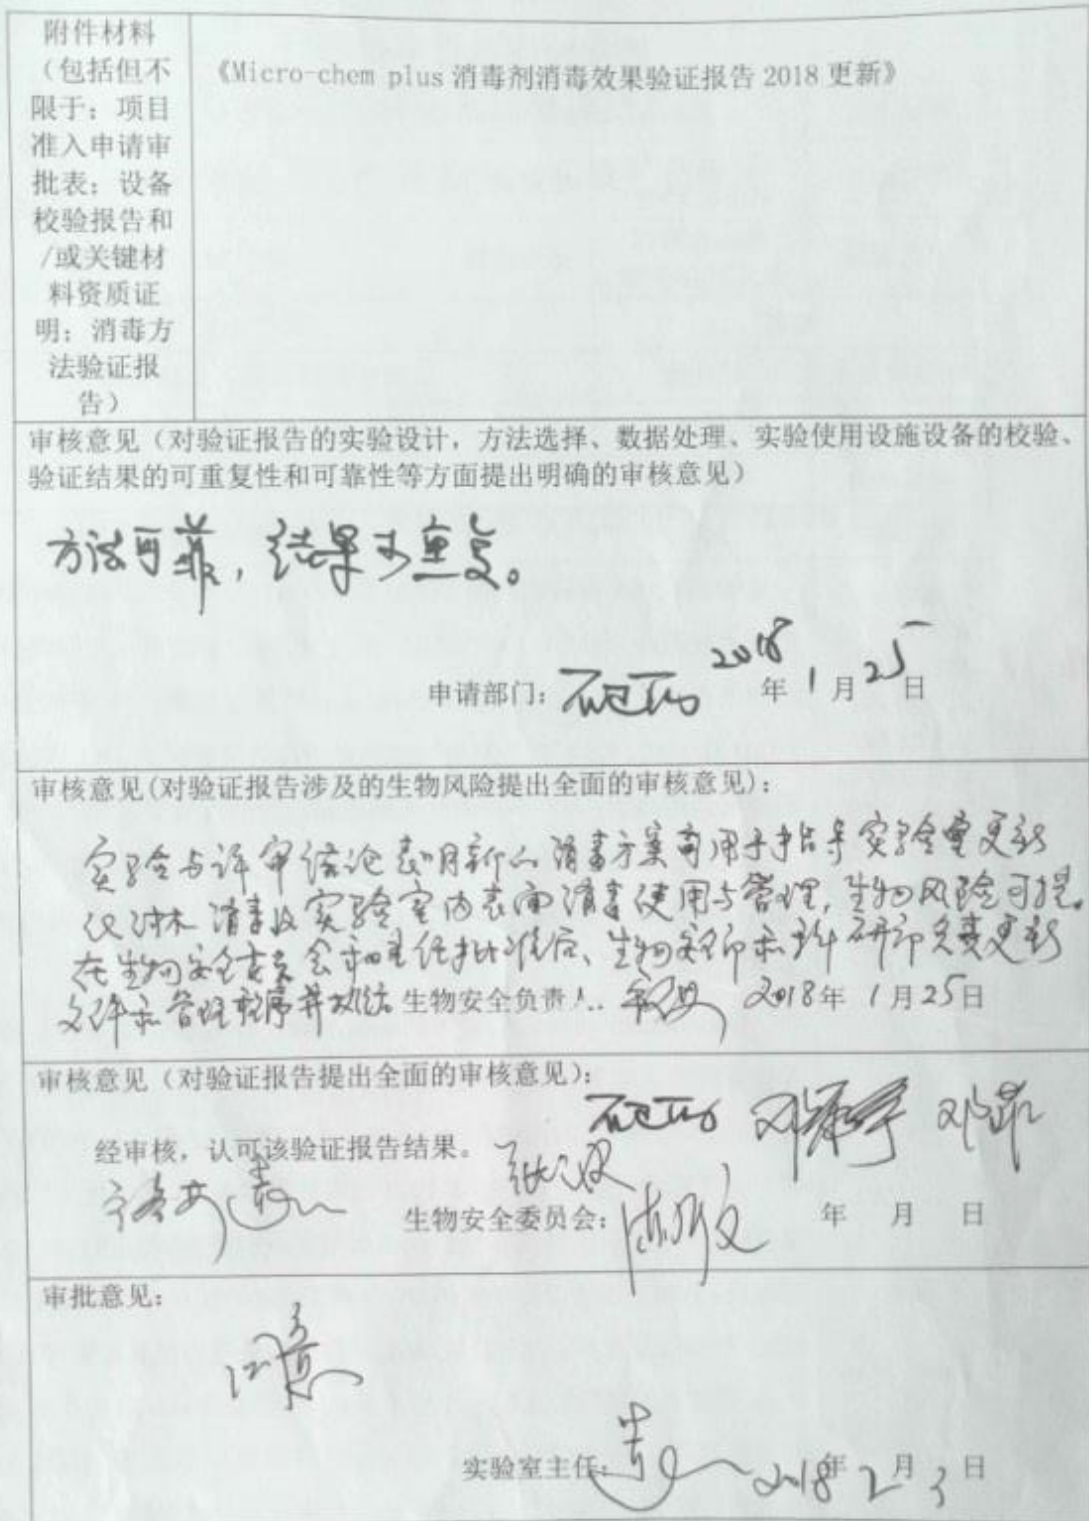 附件材料
（包括但不
限于：项目
准入申请审
批表；设备
校验报告和
/或关键材
料资质证
明；消毒方
法验证报
告）
《Micro-chem plus 消毒剂消毒效果验证报告 2018 更新》
审核意见（对验证报告的实验设计，方法选择、数据处理、实验使用设施设备的校验、
验证结果的可重复性和可靠性等方面提出明确的审核意见）
方法可靠，结果可重复。
申请部门： 2018年 1月25日
审核意见(对验证报告涉及的生物风险提出全面的审核意见)：
实验与评审结论表明新的消毒方案可用于指导实验室更新
化淋消毒及实验室内表面消毒使用与管理，生物风险可控。
在生物安全委员会和主任批准后、生物安全部和 负责更新
文件和管理程序并 生物安全负责人： 2018年 1月25日
审核意见（对验证报告提出全面的审核意见）：
经审核，认可该验证报告结果。
生物安全委员会： 年 月 日
审批意见：
同意
实验室主任： 2018年 2月 3日